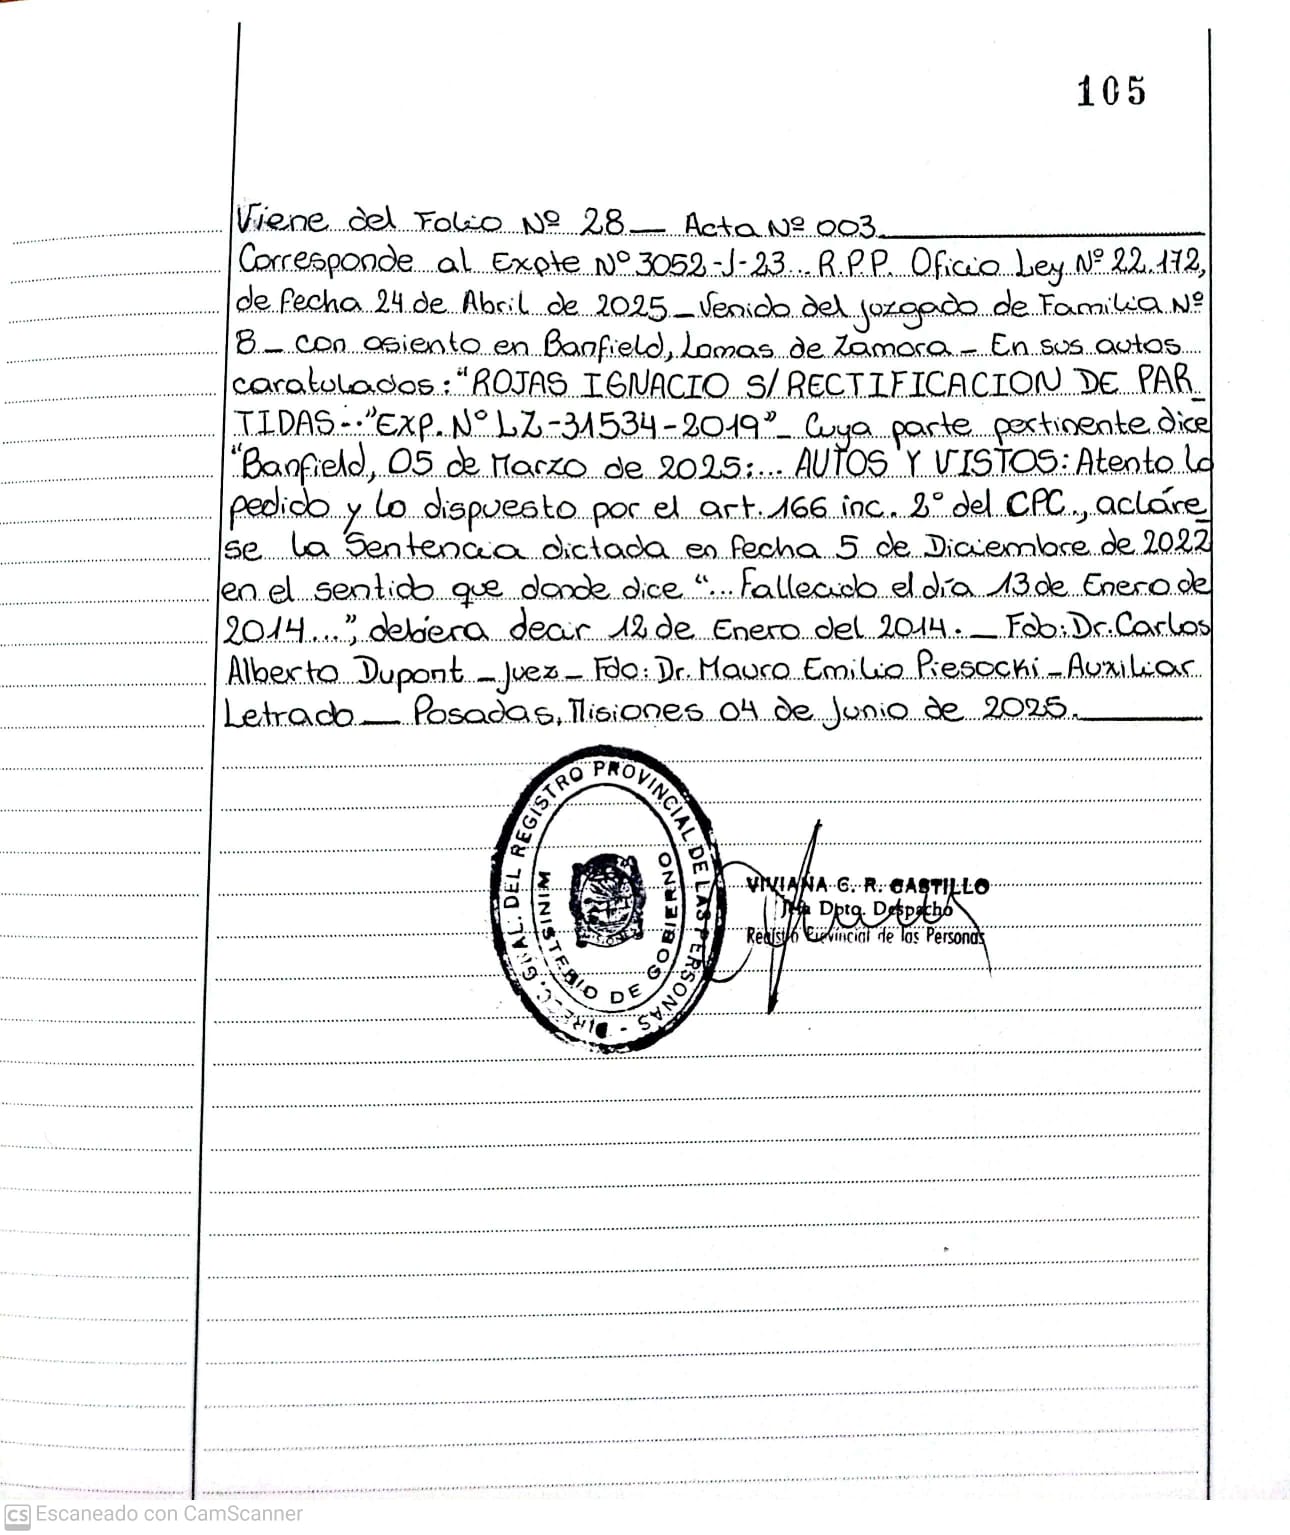 105
Viene del Folio Nº 28 — Acta Nº 003.
Corresponde al Expte Nº 3052-J-23.. R.P.P. Oficio Ley Nº 22.172,
de fecha 24 de Abril de 2025 _ Venido del juzgado de Familia Nº
8 _ con asiento en Banfield, Lomas de Zamora _ En sus autos
caratulados: "ROJAS IGNACIO S/ RECTIFICACION DE PAR_
TIDAS.- "EXP. Nº LZ-31534-2019" _ Cuya parte pertinente dice
"Banfield, 05 de Marzo de 2025:... AUTOS Y VISTOS: Atento lo
pedido y lo dispuesto por el art. 166 inc. 2º del CPC., acláre
se la Sentencia dictada en fecha 5 de Diciembre de 2022
en el sentido que donde dice "... Fallecido el día 13 de Enero de
2014...", debiera decir 12 de Enero del 2014. _ Fdo: Dr. Carlos
Alberto Dupont _ Juez _ Fdo: Dr. Mauro Emilio Piesocki _ Auxiliar
Letrado — Posadas, Misiones 04 de Junio de 2025.
DIREC. GRAL. DEL REGISTRO PROVINCIAL DE LAS PERSONAS -
MINISTERIO DE GOBIERNO
VIVIANA G. R. CASTILLO
Jefa Dpto. Despacho
Registro Provincial de las Personas
CS Escaneado con CamScanner